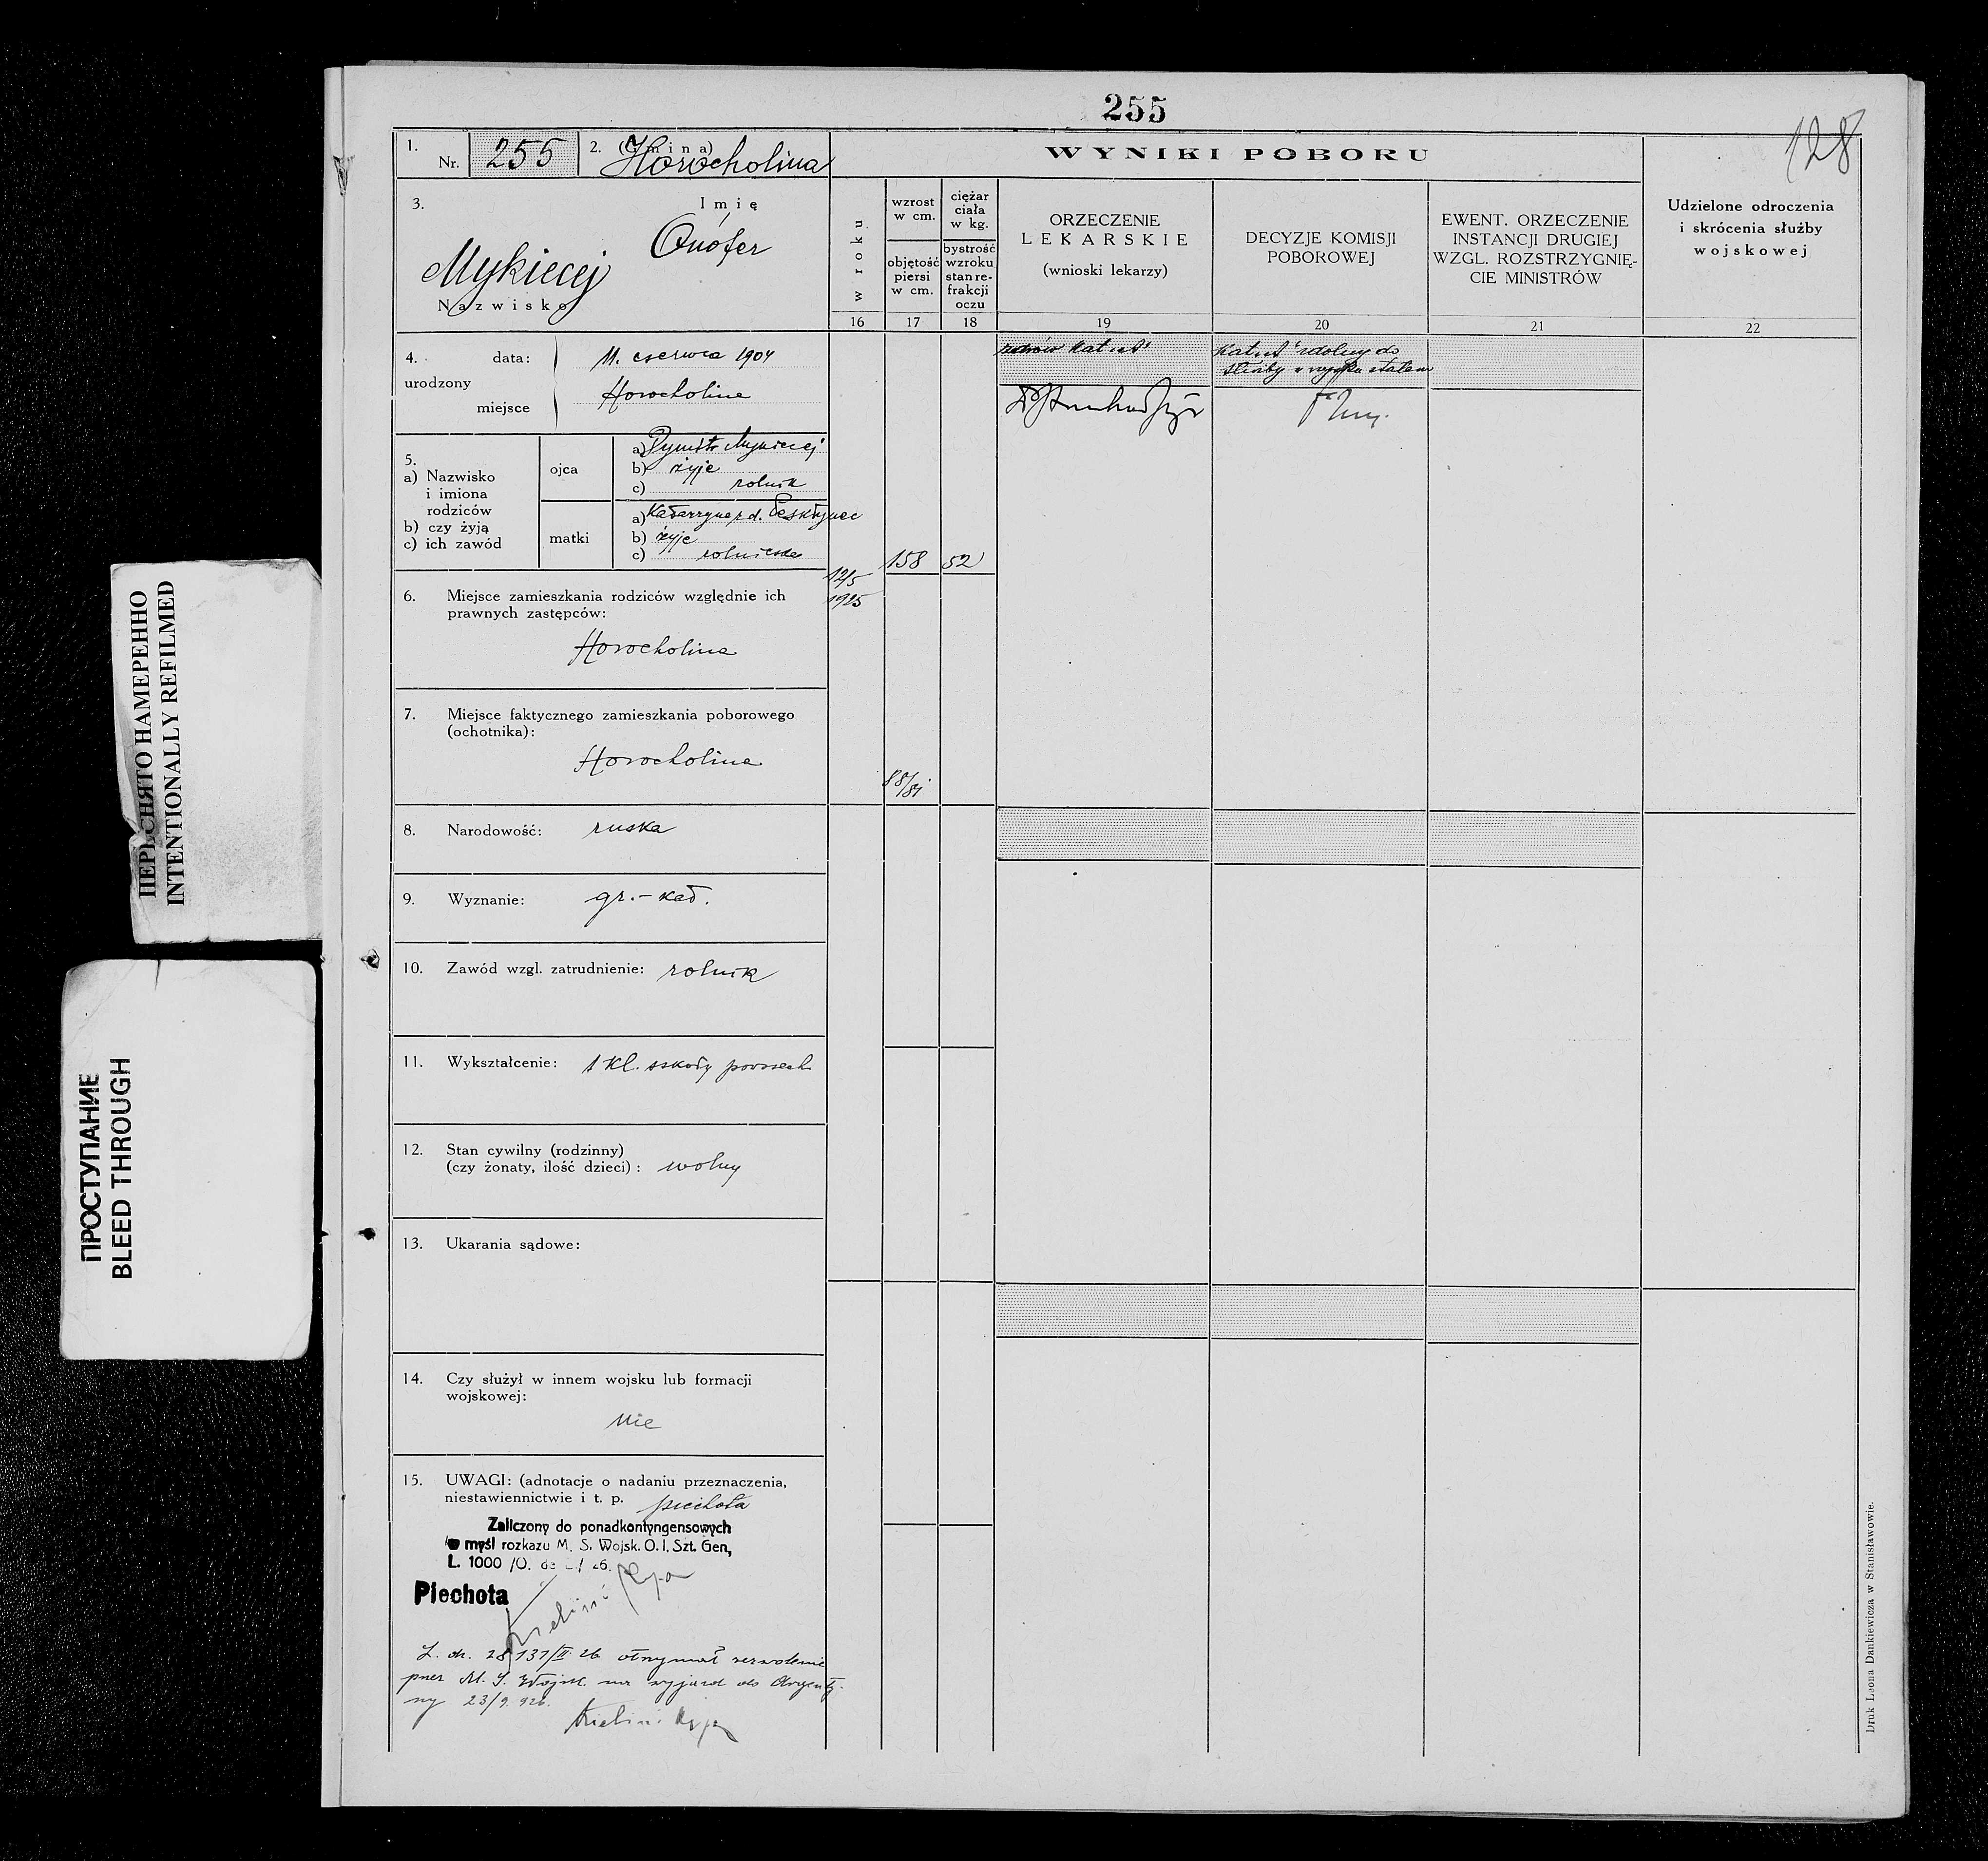 255
128
1. Nr. 255 2. (Gmina) Horocholina
WYNIKI POBORU
3. Imię
Onófer
Mykiecej
Nazwisko
w roku
wzrost w cm.
objętość piersi w cm.
ciężar ciała w kg.
bystrość wzroku stan re-frakcji oczu
ORZECZENIE
LEKARSKIE
(wnioski lekarzy)
DECYZJE KOMISJI
POBOROWEJ
EWENT. ORZECZENIE
INSTANCJI DRUGIEJ
WZGL. ROZSTRZYGNIĘ-
CIE MINISTRÓW
Udzielone odroczenia
i skrócenia służby
wojskowej
16 17 18 19 20 21 22
4. data: 11. czerwca 1904
urodzony
miejsce Horocholina
zdrów Kat. A
Kat. A zdolny do
służby w wojsku stałem
5.
a) Nazwisko
i imiona
rodziców
b) czy żyją
c) ich zawód
ojca
a) Dymitr Mykiecej
b) żyje
c) rolnik
matki
a) Katarzyna z d.
b) żyje
c) rolniczka
12/5
1925
158
52
88/81
6. Miejsce zamieszkania rodziców względnie ich
prawnych zastępców:
Horocholina
7. Miejsce faktycznego zamieszkania poborowego
(ochotnika):
Horocholina
8. Narodowość: ruska
9. Wyznanie: gr.-kat.
10. Zawód wzgl. zatrudnienie: rolnik
11. Wykształcenie: 1 kl. szkoły powszech.
12. Stan cywilny (rodzinny)
(czy żonaty, ilość dzieci): wolny
13. Ukarania sądowe:
14. Czy służył w innem wojsku lub formacji
wojskowej:
nie
15. UWAGI: (adnotacje o nadaniu przeznaczenia,
niestawiennictwie i t. p. piechota
Zaliczony do ponadkontyngensowych
w myśl rozkazu M. S. Wojsk. O. I. Szt. Gen,
L. 1000 /O. de 26.
Piechota
L. dz. 28131/II 26 otrzymał zezwolenie
przez M. S. Wojsk. na wyjazd do Argenty-
ny 23/9. 926.
Druk Leona Dankiewicza w Stanisławowie.
ПЕРЕСНЯТО НАМЕРЕННО
INTENTIONALLY REFILMED
ПРОСТУПАНИЕ
BLEED THROUGH